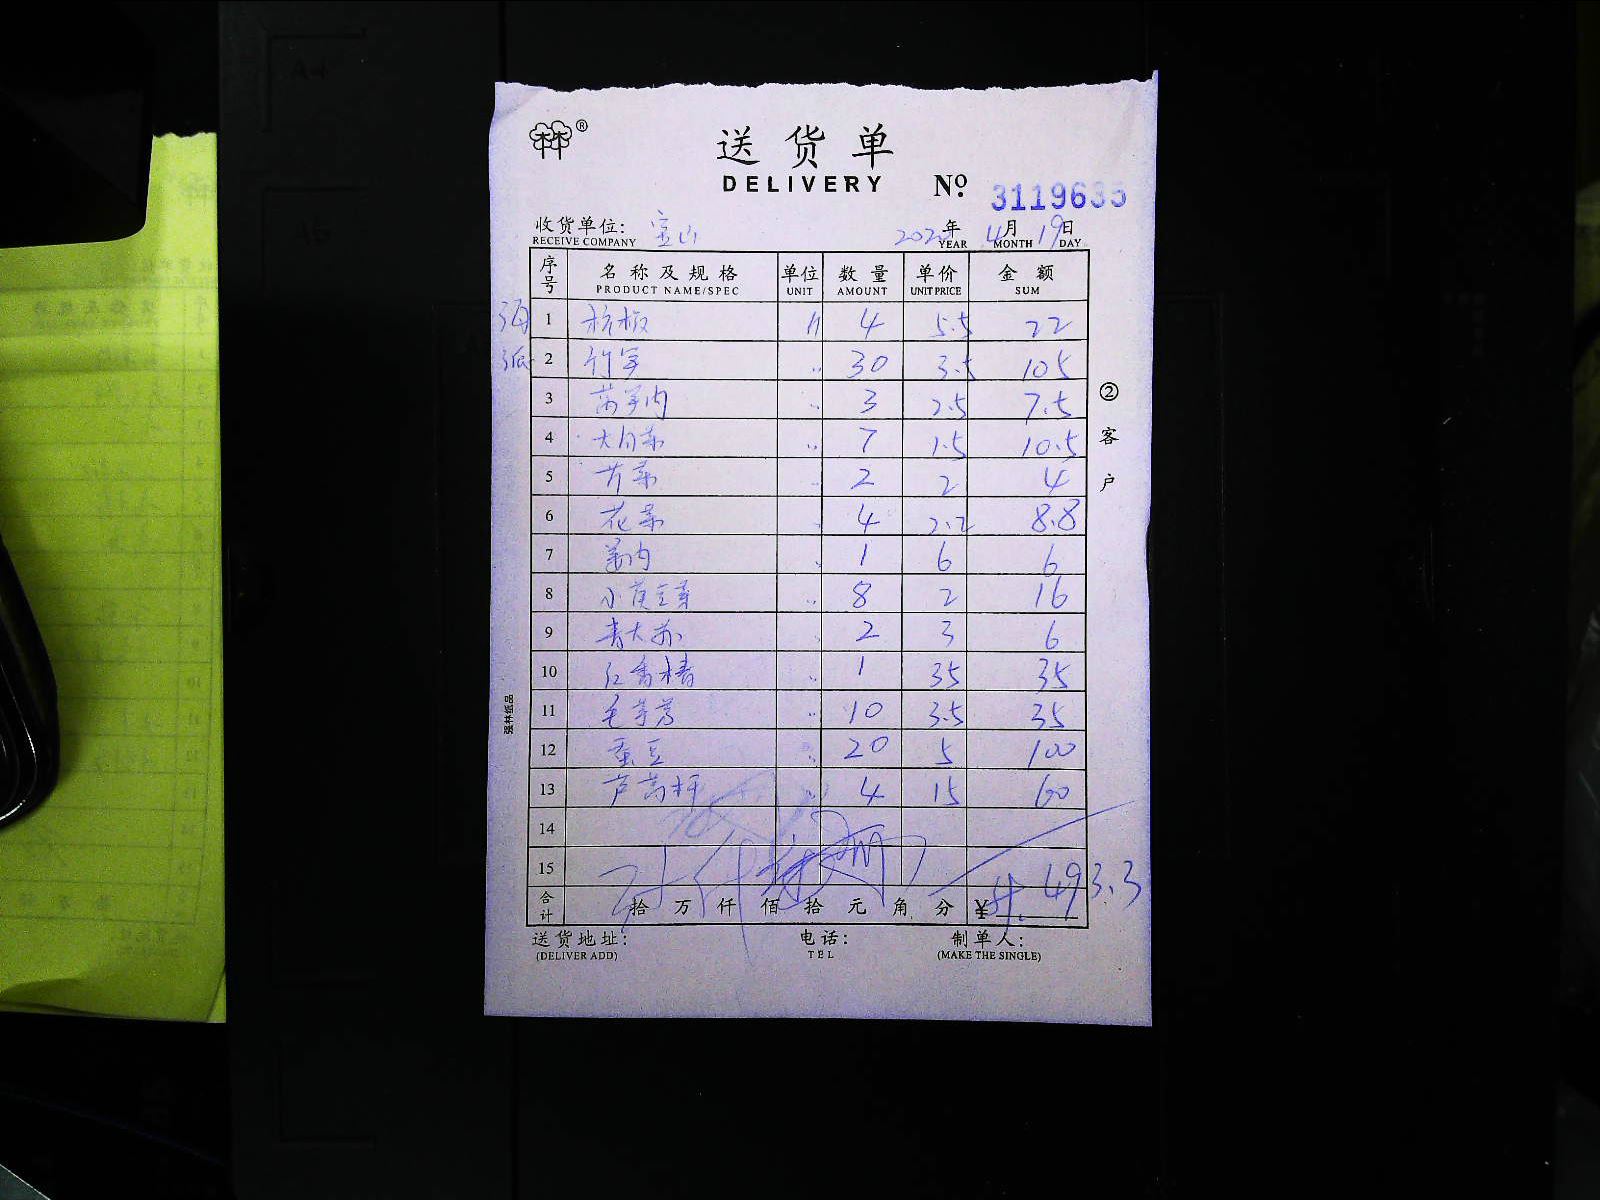 林林 ®
送货单
DELIVERY
№ 3119635
收货单位: 宝山 2020年4月19日
RECEIVE COMPANY YEAR MONTH DAY
序号 名称及规格 单位 数量 单价 金额
PRODUCT NAME/SPEC UNIT AMOUNT UNIT PRICE SUM
1 杭椒 斤 4 5.5 22
2 竹笋 〃 30 3.5 105
3 莴笋肉 〃 3 2.5 7.5
4 大白菜 〃 7 1.5 10.5
5 芹菜 〃 2 2 4
6 花菜 〃 4 2.2 8.8
7 姜肉 〃 1 6 6
8 小黄豆芽 〃 8 2 16
9 青大蒜 2 3 6
10 红香椿 〃 1 35 35
11 毛芋艿 〃 10 3.5 35
12 蚕豆 〃 20 5 100
13 芦蒿杆 〃 4 15 60
14
15
合计 拾 万 仟 佰 拾 元 角 分 ¥ 493.3
送货地址: 电话: 制单人:
(DELIVER ADD) TEL (MAKE THE SINGLE)
②客户
强林纸品